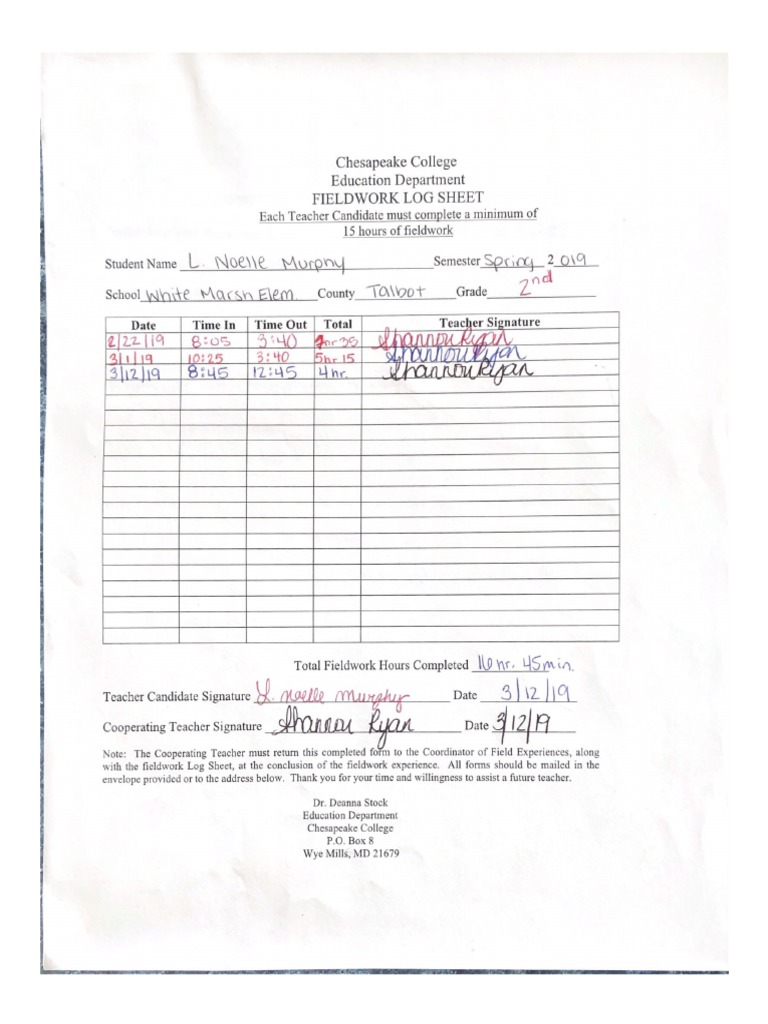 Chesapeake College
Education Department
FIELDWORK LOG SHEET
Each Teacher Candidate must complete a minimum of
15 hours of fieldwork
Student Name L. Noelle Murphy Semester Spring 2 019
School White Marsh Elem. County Talbot Grade 2nd
Date Time In Time Out Total Teacher Signature
2/22/19 8:05 3:40 7hr 35 Shannon Ryan
3/1/19 10:25 3:40 5hr 15 Shannon Ryan
3/12/19 8:45 12:45 4 hr. Shannon Ryan
Total Fieldwork Hours Completed 16 hr. 45 min.
Teacher Candidate Signature L. Noelle Murphy Date 3/12/19
Cooperating Teacher Signature Shannon Ryan Date 3/12/19
Note: The Cooperating Teacher must return this completed form to the Coordinator of Field Experiences, along
with the fieldwork Log Sheet, at the conclusion of the fieldwork experience. All forms should be mailed in the
envelope provided or to the address below. Thank you for your time and willingness to assist a future teacher.
Dr. Deanna Stock
Education Department
Chesapeake College
P.O. Box 8
Wye Mills, MD 21679